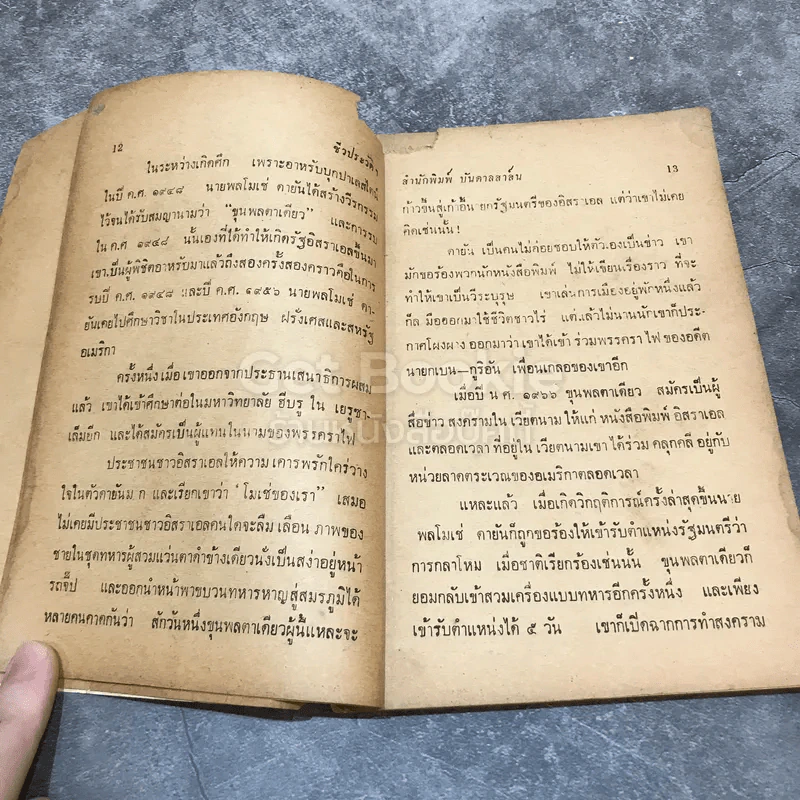 12
ชีวประวัติ ฯ
ในระหว่างเกิดศึก เพราะอาหรับบุกปาเลสไตน์
ในปี ค.ศ. ๑๙๔๘ นายพลโมเช่ ดายันได้สร้างวีรกรรม
ไว้จนได้รับสมญานามว่า “ขุนพลตาเดียว” และการรบ
ใน ค.ศ ๑๙๔๘ นั้นเองที่ได้ทำให้เกิดรัฐอิสราเอลขึ้นมา
เขาเป็นผู้พิชิตอาหรับมาแล้วถึงสองครั้งสองคราวคือในการ
รบปี ค.ศ. ๑๙๔๘ และปี ค.ศ. ๑๙๕๖ นายพลโมเช่ ดา-
ยันเคยไปศึกษาวิชาในประเทศอังกฤษ ฝรั่งเศสและสหรัฐ
อเมริกา
ครั้งหนึ่งเมื่อเขาออกจากประธานเสนาธิการผสม
แล้ว เขาได้เข้าศึกษาต่อในมหาวิทยาลัย ฮีบรู ใน เยรูซา-
เล็มอีก และได้สมัครเป็นผู้แทนในนามของพรรคราไฟ
ประชาชนชาวอิสราเอลให้ความ เคารพรักใคร่วาง
ใจในตัวดายันม ก และเรียกเขาว่า “ โมเช่ของเรา” เสมอ
ไม่เคยมีประชาชนชาวอิสราเอลคนใดจะลืม เลือน ภาพของ
ชายในชุดทหารผู้สวมแว่นตาดำข้างเดียวนั่งเป็นสง่าอยู่หน้า
รถจี๊ป และออกนำหน้าพาขบวนทหารหาญสู่สมรภูมิได้
หลายคนคาดกันว่า สักวันหนึ่งขุนพลตาเดียวผู้นี้แหละจะ
สำนักพิมพ์ บันดาลสาส์น
13
ก้าวขึ้นสู่เก้าอี้นายกรัฐมนตรีของอิสราเอล แต่ว่าเขาไม่เคย
คิดเช่นนั้น !
ดายัน เป็นคนไม่ค่อยชอบให้ตัวเองเป็นข่าว เขา
มักขอร้องพวกนักหนังสือพิมพ์ ไม่ให้เขียนเรื่องราว ที่จะ
ทำให้เขาเป็นวีระบุรุษ เขาเล่นการเมืองอยู่พักหนึ่งแล้ว
ก็ล มือออกมาใช้ชีวิตชาวไร่ แต่แล้วไม่นานนักเขาก็ประ-
กาศโผงผาง ออกมาว่าเขาได้เข้า ร่วมพรรครา ไฟ ของอดีต
นายกเบน—กูริอัน เพื่อนเกลอของเขาอีก
เมื่อปี น ศ. ๑๙๖๖ ขุนพลตาเดียว สมัครเป็นผู้
สื่อข่าว สงครามใน เวียตนาม ให้แก่ หนังสือพิมพ์ อิสราเอล
และตลอดเวลา ที่อยู่ใน เวียตนามเขา ได้ร่วม คลุกคลี อยู่กับ
หน่วยลาดตระเวณของอเมริกาตลอดเวลา
แหละแล้ว เมื่อเกิดวิกฤติการณ์ครั้งล่าสุดขึ้นนาย
พลโมเช่ ดายันก็ถูกขอร้องให้เข้ารับตำแหน่งรัฐมนตรีว่า
การกลาโหม เมื่อชาติเรียกร้องเช่นนั้น ขุนพลตาเดียวก็
ยอมกลับเข้าสวมเครื่องแบบทหารอีกครั้งหนึ่ง และเพียง
เข้ารับตำแหน่งได้ ๕ วัน เขาก็เปิดฉากการทำสงคราม
Get Bookie